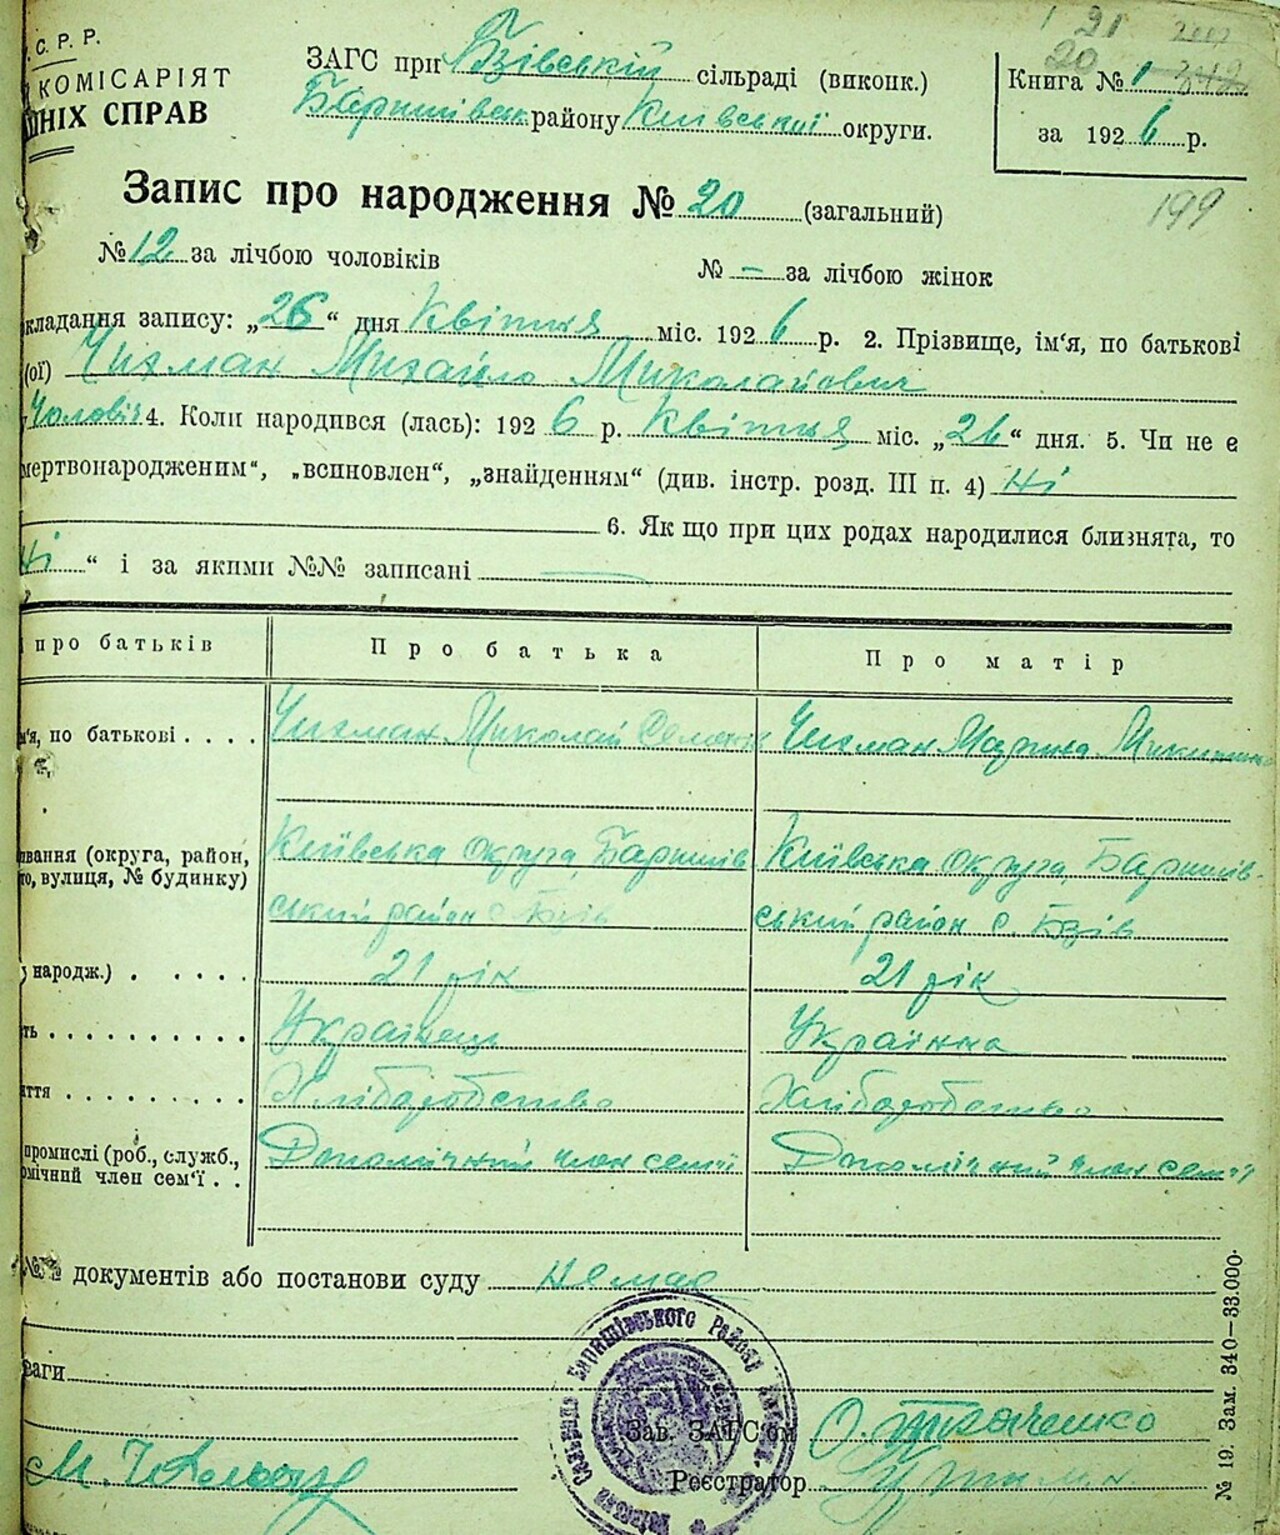 С. Р. Р.
КОМІСАРІЯТ
ШНІХ СПРАВ
ЗАГС при Бзівській сільраді (виконк.)
Баришівськ району Київської округи.
1 21
20
Книга № 1
за 1926 р.
199
Запис про народження № 20 (загальний)
№ 12 за лічбою чоловіків
№ — за лічбою жінок
кладання запису: „26“ дня Квітня міс. 1926 р. 2. Прізвище, ім'я, по батькові
(ої) Чихман Михайло Миколайович
Чоловіч 4. Коли народився (лась): 1926 р. Квітня міс. „26“ дня. 5. Чи не є
мертвонародженим“, „всиновлен“, „знайденням“ (див. інстр. розд. III п. 4) Ні
6. Як що при цих родах народилися близнята, то
Ні “ і за якими №№ записані —
про батьків
Про батька
Про матір
м'я, по батькові . . . .
Чихман Миколай
Чихман Марина
вання (округа, район,
то, вулиця, № будинку)
Київська Округа, Баришів
ський район с. Бзів
Київська Округа, Баришів-
ський район с. Бзів
народж.) . . . . .
21 рік
21 рік
ть . . . . . . . . . .
Українець
Українка
ття . . . . . . . . .
Хліборобство
Хліборобство
промислі (роб., служб.,
омічний член сем'ї . .
Допомічний член семії
Допомічний член семії
№№ документів або постанови суду немає
ваги
Баришівського Району
Зав. ЗАГС'ом О. Ткаченко
Реєстратор
№ 19. Зам. 340—33.000.